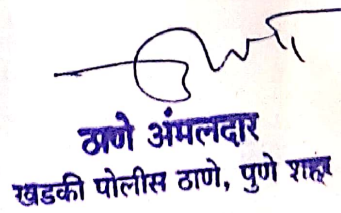 ठाणे अंमलदार
खडकी पोलीस ठाणे, पुणे शहर